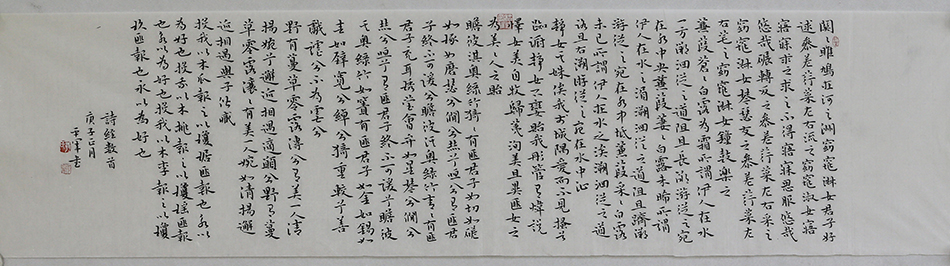 關〻雎鳩在河之洲窈窕淑女君子好
逑參差荇菜左右流之窈窕淑女寤
寐求之求之不得寤寐思服悠哉
悠哉輾轉反之參差荇菜左右采之
窈窕淋女琴瑟友之參差荇菜左
右芼之窈窕淋女鐘鼓樂之
蒹葭蒼〻白露為霜所謂伊人在水
一方溯洄從之道阻且長溯游從之宛
在水中央蒹葭萋〻白露未晞所謂
伊人在水之湄溯洄從之道阻且躋溯
游從之宛在水中坻蒹葭采〻白露
未已所謂伊人在水之涘溯洄從之道
阻且右溯游從之宛在水中沚
靜女其姝俟我於城隅愛而不見搔首
踟躕靜女其孌貽我彤管彤管有煒說
懌女美自牧歸荑洵美且異匪女之
為美美人之貽
瞻彼淇奧綠竹猗〻有匪君子如切如磋
如琢如磨瑟兮僩兮赫兮咺兮有匪君
子終不可諼兮瞻彼淇奧綠竹青〻有匪
君子充耳琇瑩會弁如星瑟兮僩兮
赫兮咺兮有匪君子終不可諼兮瞻彼
淇奧綠竹如簀有匪君子如金如錫如
圭如璧寬兮綽兮猗重較兮善
戲謔兮不為虐兮
野有蔓草零露漙兮有美一人清
揚婉兮邂逅相遇適願兮野有蔓
草零露瀼〻有美一人婉如清揚邂
逅相遇與子偕臧
投我以木瓜報之以瓊琚匪報也永以
為好也投我以木桃報之以瓊瑤匪報
也永以為好也投我以木李報之以瓊
玖匪報也永以為好也
詩經數首
庚子正月